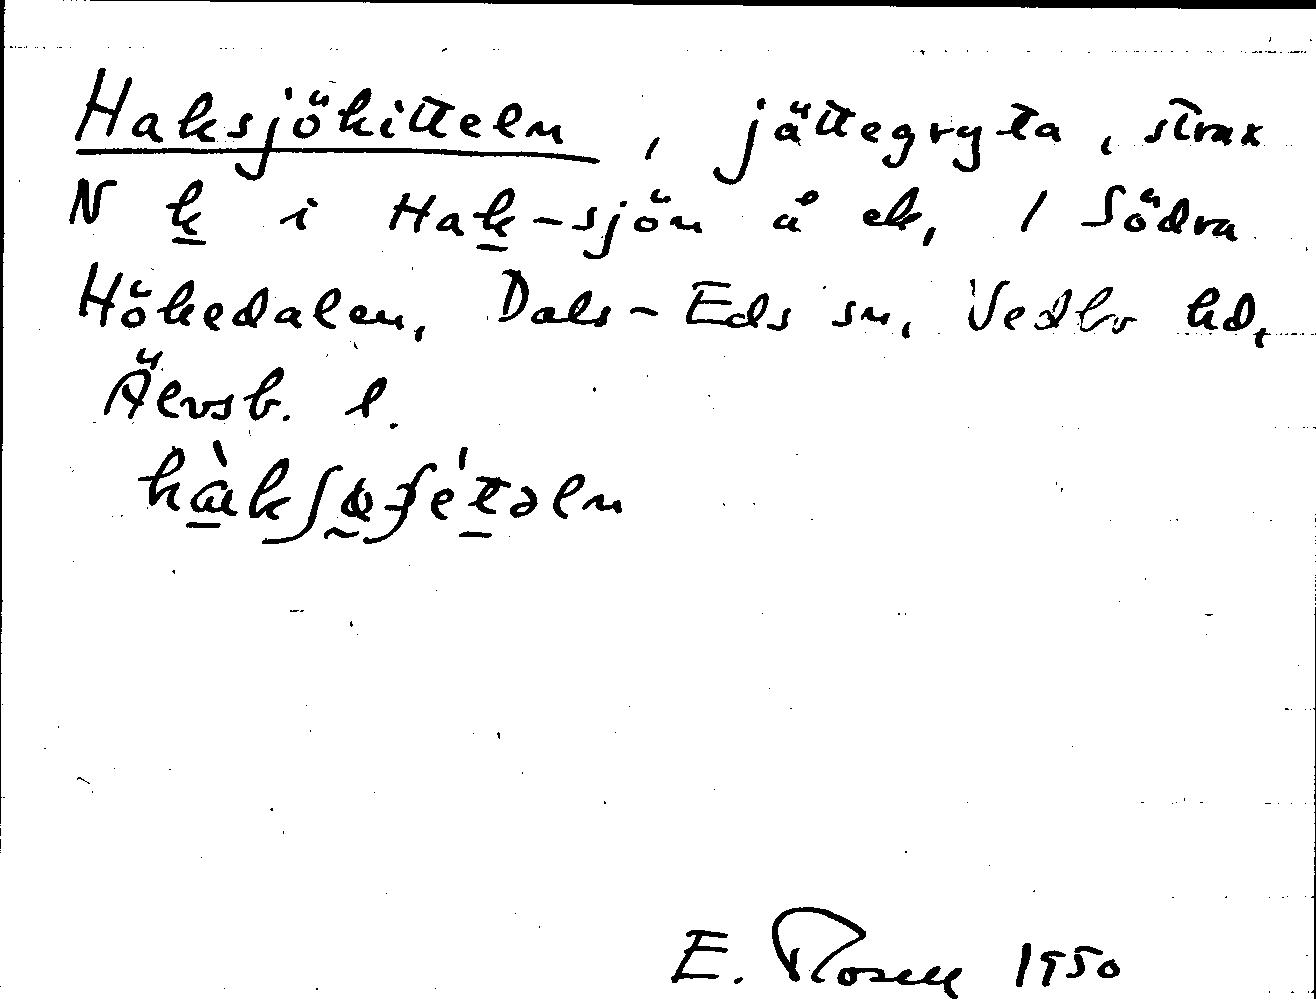 Haksjökitteln, jättegryta, strax
N k i Hak-sjön å ek, 1 Södra
Hökedalen, Dals-Eds sn, Vedbo hd,
Älvsb. l.
E. Rosell 1950